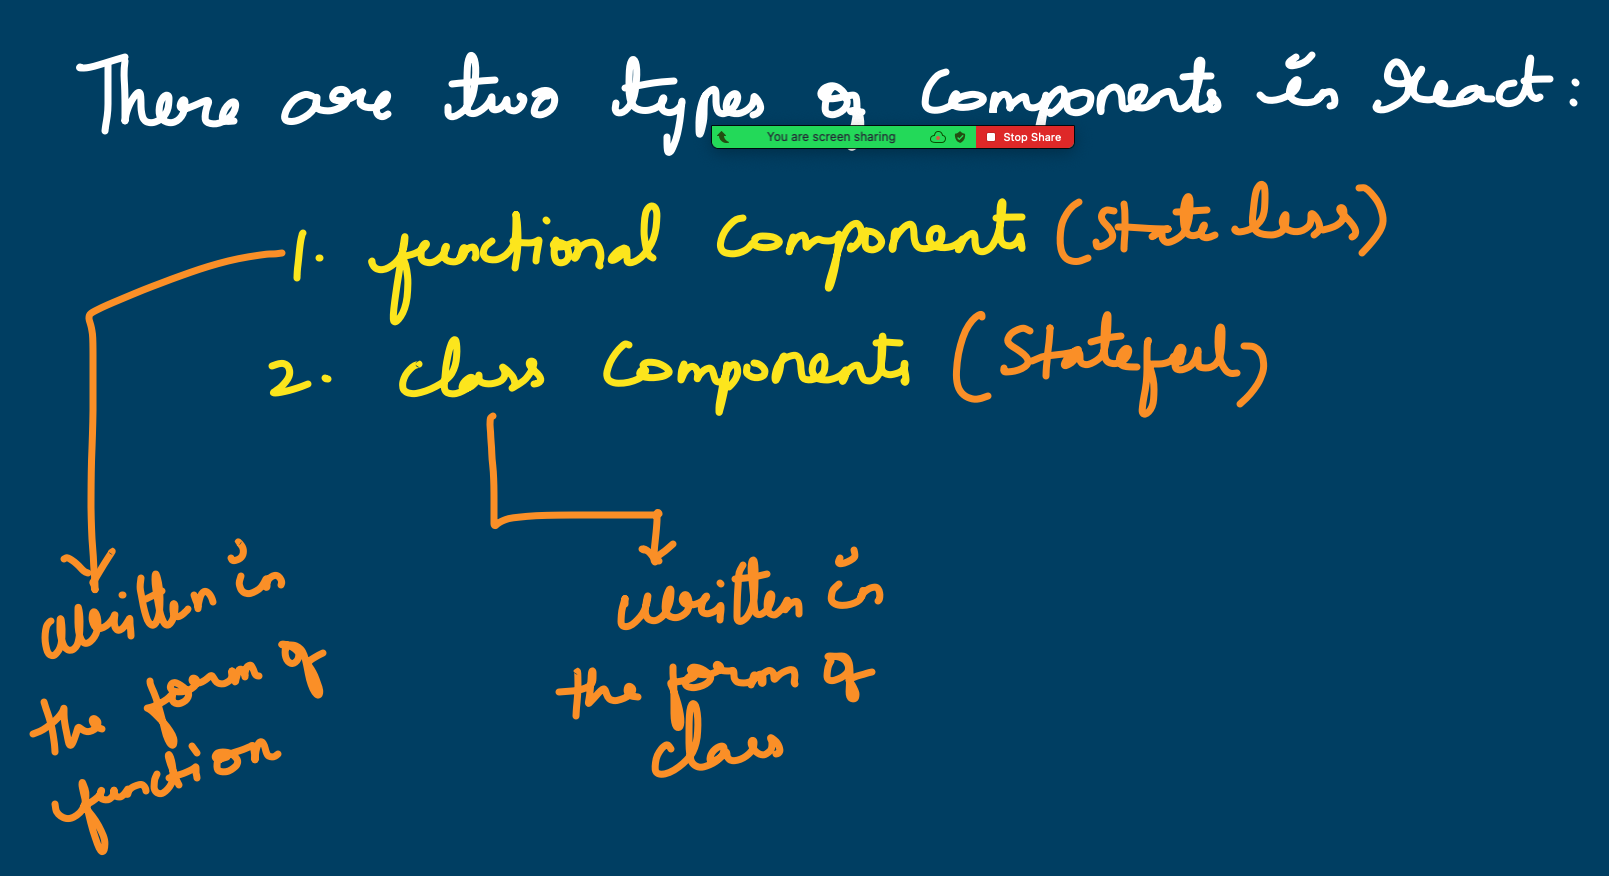 There are two types of Components in React:
You are screen sharing
Stop Share
1. functional Components (Stateless)
2. class Components (Stateful)
written in
the form of
function
written in
the form of
class